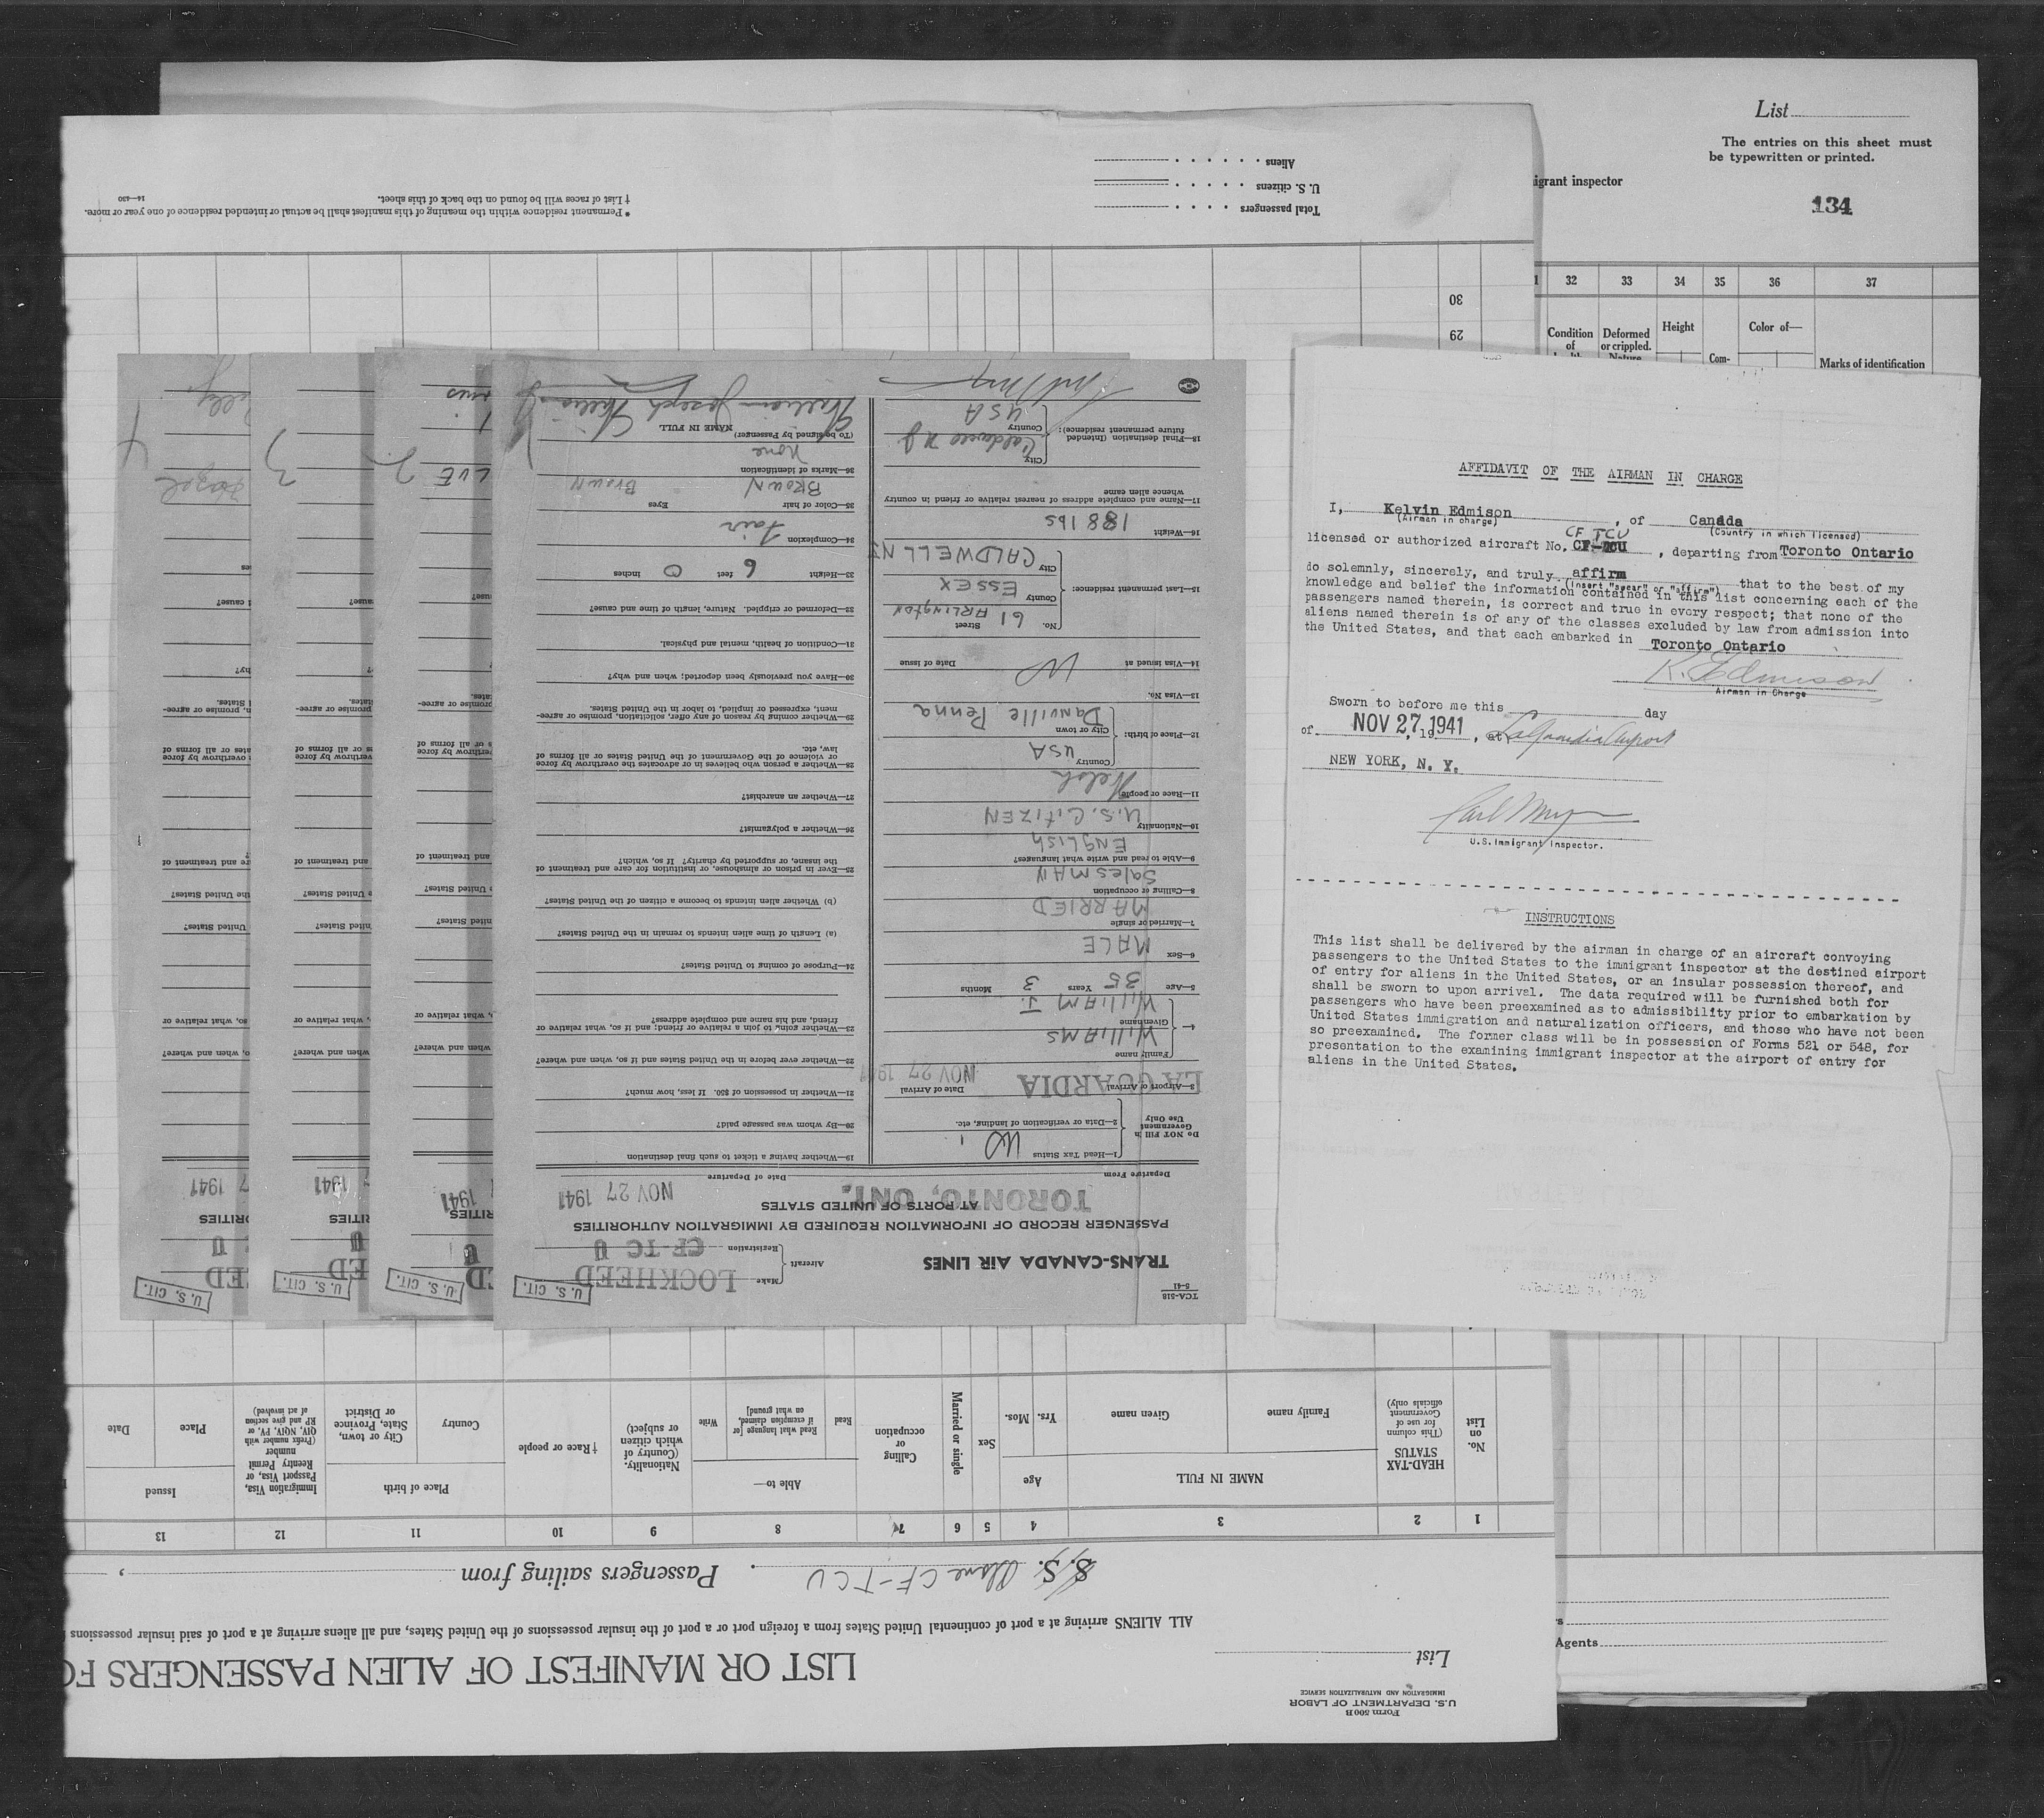 List
The entries on this sheet must
be typewritten or printed.
igrant inspector
134
32 33 34 35 36 37
Condition
of
Deformed
or crippled.
Nature
Height
Com-
Color of—
Marks of identification
s
Agents
AFFIDAVIT OF THE AIRMAN IN CHARGE
I, Kelvin Edmison, of Canada
(Airman in charge) (Country in which licensed)
CF TCU
licensed or authorized aircraft No. CF-TCU, departing from Toronto Ontario
do solemnly, sincerely, and truly affirm that to the best of my
(insert "swear" or "affirm")
knowledge and belief the information contained in this list concerning each of the
passengers named therein, is correct and true in every respect; that none of the
aliens named therein is of any of the classes excluded by law from admission into
the United States, and that each embarked in Toronto Ontario
K. Edmison
Airman in Charge
Sworn to before me this day
of NOV 27 1941, 19, at LaGuardia Airport
NEW YORK, N. Y.
U.S. Immigrant Inspector.
INSTRUCTIONS
This list shall be delivered by the airman in charge of an aircraft convoying
passengers to the United States to the immigrant inspector at the destined airport
of entry for aliens in the United States, or an insular possession thereof, and
shall be sworn to upon arrival. The data required will be furnished both for
passengers who have been preexamined as to admissibility prior to embarkation by
United States immigration and naturalization officers, and those who have not been
so preexamined. The former class will be in possession of Forms 521 or 548, for
presentation to the examining immigrant inspector at the airport of entry for
aliens in the United States.
Form 500 B
U.S. DEPARTMENT OF LABOR
IMMIGRATION AND NATURALIZATION SERVICE
List
LIST OR MANIFEST OF ALIEN PASSENGERS FO
ALL ALIENS arriving at a port of continental United States from a foreign port or a port of the insular possessions of the United States, and all aliens arriving at a port of said insular possessions
S.S. Plane CF-TCU. Passengers sailing from ,
1 2 3 4 5 6 7 8 9 10 11 12 13
No.
on
List
HEAD-TAX
STATUS
(This column
for use of
Government
officials only)
NAME IN FULL
Family name Given name
Age
Yrs. Mos.
Sex
Married or single
Calling
or
occupation
Able to—
Read
Read what language [or
if exemption claimed,
on what ground]
Write
Nationality.
(Country of
which citizen
or subject)
†Race or people
Place of birth
Country
City or town,
State, Province
or District
Immigration Visa,
Passport Visa, or
Reentry Permit
number
(Prefix number with
QIV, NQIV, PV, or
RP and give section
of act involved)
Issued
Place Date
29
30
Total passengers
U. S. citizens
Aliens
* Permanent residence within the meaning of this manifest shall be actual or intended residence of one year or more.
† List of races will be found on the back of this sheet.
14—430
TCA-518
5-41
TRANS-CANADA AIR LINES
Aircraft
Make LOCKHEED
Registration CF-TCU
U. S. CIT.
PASSENGER RECORD OF INFORMATION REQUIRED BY IMMIGRATION AUTHORITIES
AT PORTS OF UNITED STATES
TORONTO, ONT. NOV 27 1941
Departure From Date of Departure
Do NOT Fill In
Government
Use Only
1—Head Tax Status
2—Data or verification of landing, etc.
3—Airport of Arrival LA GUARDIA Date of Arrival NOV 27 1941
4—
Family name WILLIAMS
Given name WILLIAM J.
5—Age 35 Years 3 Months
6—Sex MALE
7—Married or single MARRIED
8—Calling or occupation SALESMAN
9—Able to read and write what languages? ENGLISH
10—Nationality U.S. CITIZEN
11—Race or people Welsh
12—Place of birth:
Country USA
City or town Danville Penna
13—Visa No.
14—Visa issued at Date of issue
15—Last permanent residence:
No. 61 Street ARLINGTON
County ESSEX
City CALDWELL NJ
16—Weight 188 lbs
17—Name and complete address of nearest relative or friend in country
whence alien came
18—Final destination (Intended
future permanent residence):
City Caldwell N J
Country USA
19—Whether having a ticket to such final destination
20—By whom was passage paid?
21—Whether in possession of $50. If less, how much?
22—Whether ever before in the United States and if so, when and where?
23—Whether going to join a relative or friend; and if so, what relative or
friend, and his name and complete address?
24—Purpose of coming to United States?
(a) Length of time alien intends to remain in the United States?
(b) Whether alien intends to become a citizen of the United States?
25—Ever in prison or almshouse, or institution for care and treatment of
the insane, or supported by charity? If so, which?
26—Whether a polygamist?
27—Whether an anarchist?
28—Whether a person who believes in or advocates the overthrow by force
or violence of the Government of the United States or all forms of
law, etc.
29—Whether coming by reason of any offer, solicitation, promise or agree-
ment, expressed or implied, to labor in the United States.
30—Have you previously been deported; when and why?
31—Condition of health, mental and physical.
32—Deformed or crippled. Nature, length of time and cause?
33—Height 6 feet 0 inches
34—Complexion Fair
35—Color of hair BROWN Eyes Brown
36—Marks of identification None
(To be signed by Passenger) NAME IN FULL
William Joseph Williams
U. S. CIT.
U. S. CIT.
U. S. CIT.
2
3
4